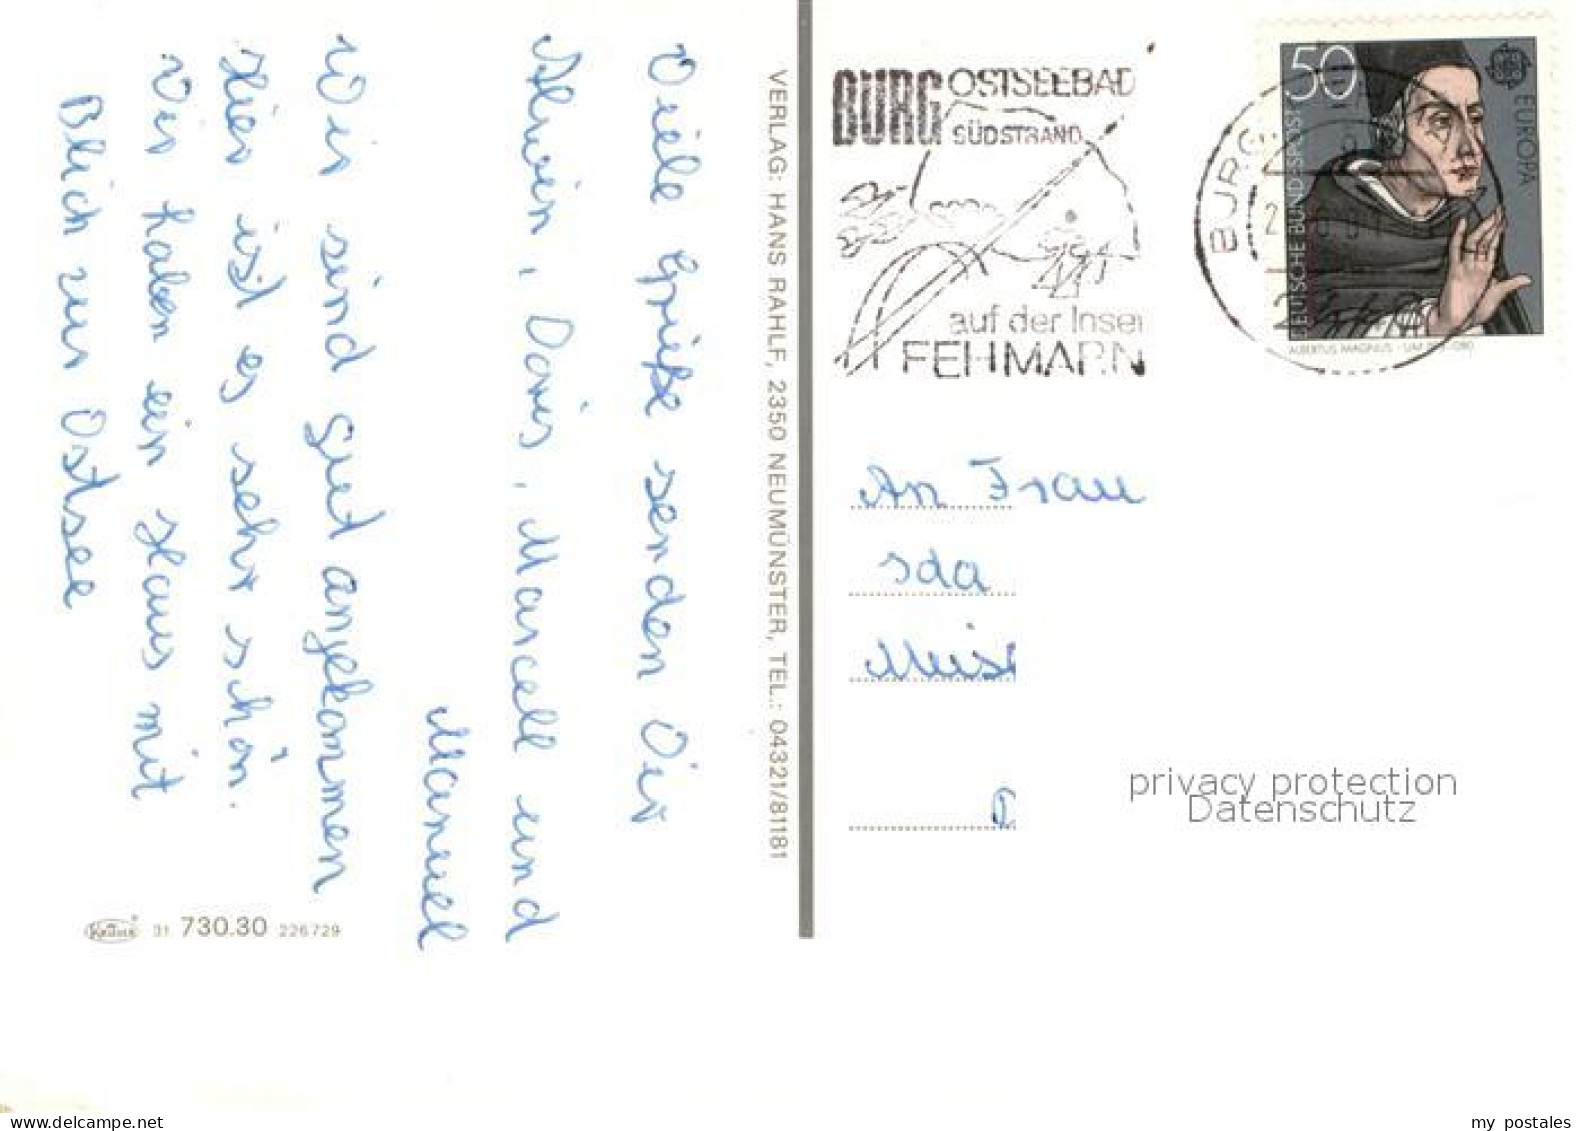 Viele Grüße senden Dir
Alwin, Doris, Marcell und
Manuel
Wir sind gut angekommen
Hier ist es sehr schön.
Wir haben ein Haus mit
Blick zur Ostsee
VERLAG: HANS RAHLF, 2350 NEUMÜNSTER, TEL.: 04321/81181
Krüger 31 730.30 226729
BURG OSTSEEBAD
SÜDSTRAND
auf der Insel
FEHMARN
BURG
50
DEUTSCHE BUNDESPOST
EUROPA
ALBERTUS MAGNUS
An Frau
privacy protection
Datenschutz
www.delcampe.net
my postales